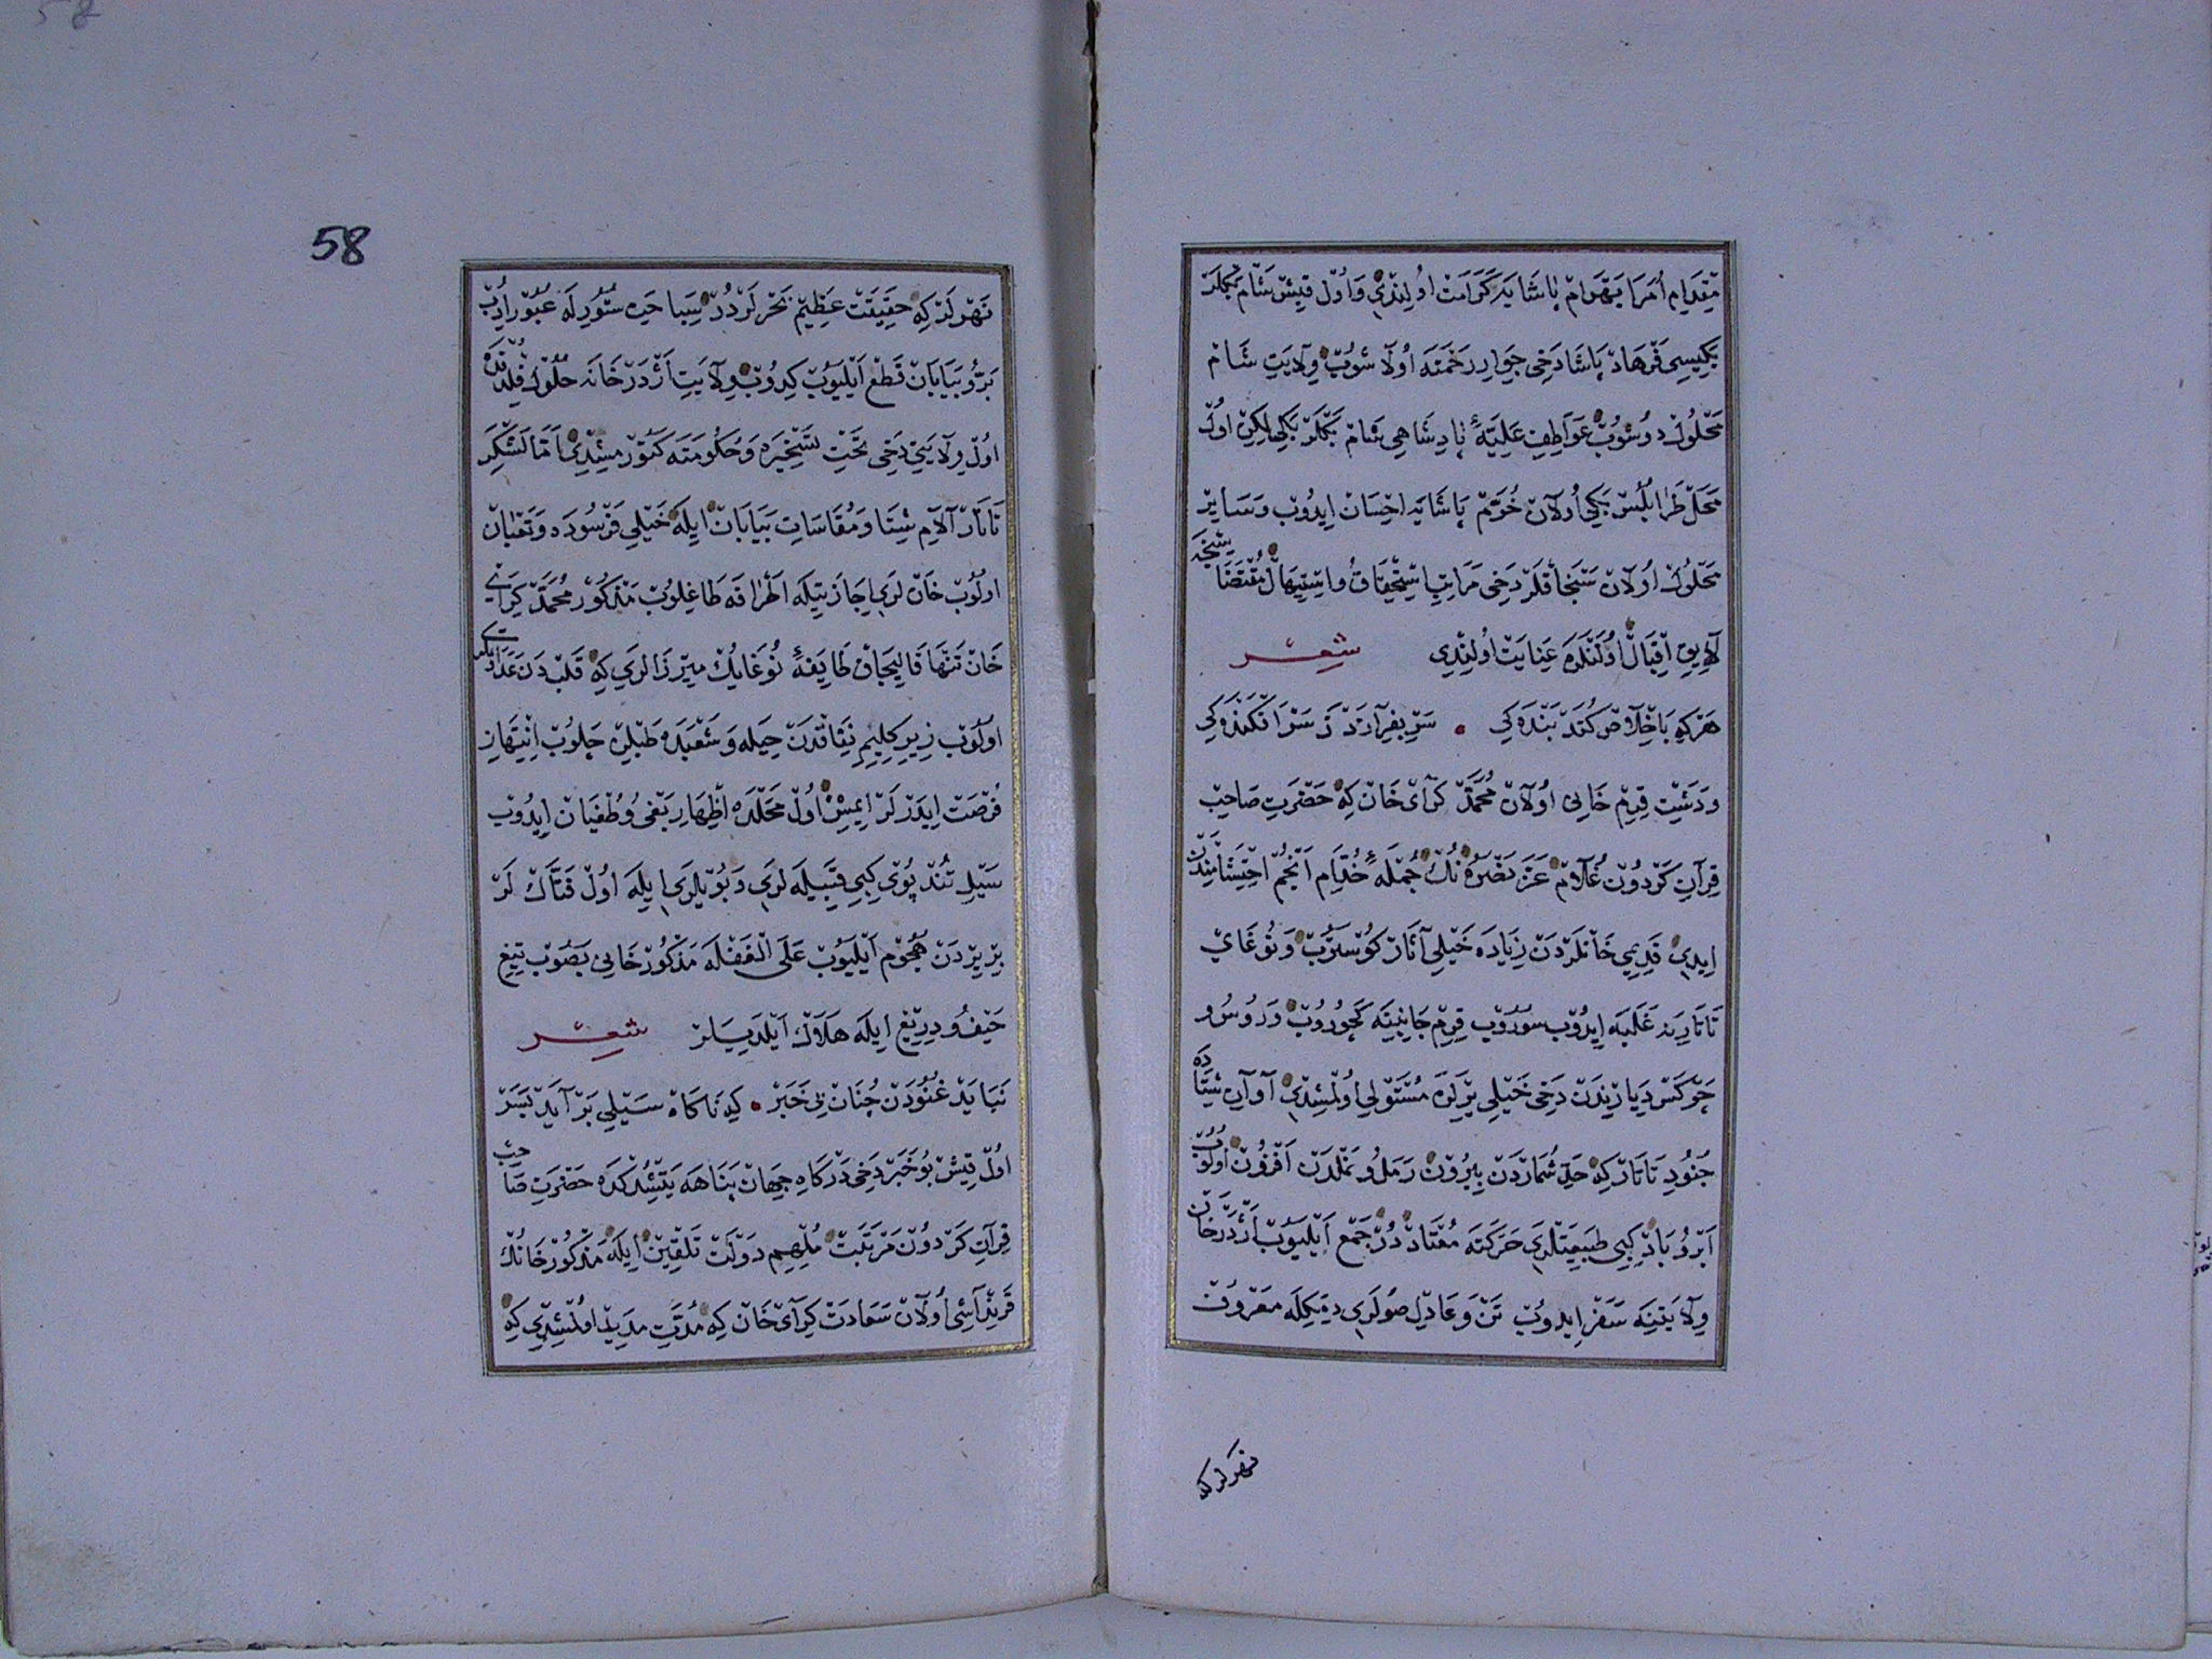 مقدام امرا بهرام پاشایه کرامت اولندی و اول قیش شام بکلر
بکیسی فرهاد پاشا دخی جوار رحمته اولاشوب ولایت شام
محلول دوشوب عواطف علیۀ پادشاهی شام بکلر بکلیکن اول
محل طرابلس بکی اولان خرم پاشایه احسان ایدوب و سایر
محلول اولان سنجاقلر دخی مراتب استحقاق و استیهال مقتضاسنجه
لایق اقبال اولنلره عنایت اولندی شعر
هرکه باخلاص کند بندکی • سر بفرازد ز سرافکندکی
و دشت قرم خانی اولان محمد کرای خان که حضرت صاحب
قران کردون غلام عز نصره نك جملۀ خدام انجم احتشامندن
ایدی قدیمی خانلردن زیاده خیلی آثار کوستروب و نوغای
تاتارینه غلبه ایدوب سوروب قرم جانبینه کچوروب و روس و
چرکس دیارندن دخی خیلی یرلره مستولی اولمشدی آوان شتاده
جنود تاتار که حد شماردن بیرون رمل و نملدن افزون اولوب
ابر و باد کبی طبیعتلری حرکته معتاددر جمع ایلیوب اژدرخان
ولایتینه سفر ایدوب تن و عادل صولری دیمکله معروف
نهرلرکه
58
نهرلر که حقیقت عظیم بحرلردر سباحت ستورله عبور ایدوب
بر و بیابان قطع ایلیوب کیروب ولایت اژدرخانه حلول قلدقدن
اول ولایتی دخی تحت تسخیره و حکومته کتورمشدی اما لشکر
تاتار آلام شتا و مقاسات بیابان ایله خیلی فرسوده و تعبان
اولوب خان لری اجازتیله اطرافه طاغلوب مذکور محمد کرای
خان تنها قالیجاق طایفۀ نوغایك میرزالری که قلبدن عداوتکی
اولوب زیر کلیم نفاقدن حیله و شعبده طبلن چلوب انتهاز
فرصت ایدرلر ایمش اول محلده اظهار بغی و طغیان ایدوب
سیل تند پوی کبی قبیله لری و بویلری ایله اول فتاك لر
بریردن هجوم ایلیوب علی الغفله مذکور خانی بصوب تیغ
حیف و دریغ ایله هلاك ایلدیلر شعر
نباید غنودن چنان بی خبر • که ناکاه سیلی برآید بسر
اول قیش بو خبر دخی درکاه جهان پناهه یتشدکده حضرت صاحب
قران کردون مرتبت ملهم دولت تلقین ایله مذکور خانك
قرنداشی اولان سعادت کرای خان که مدت مدید اولمشدی که